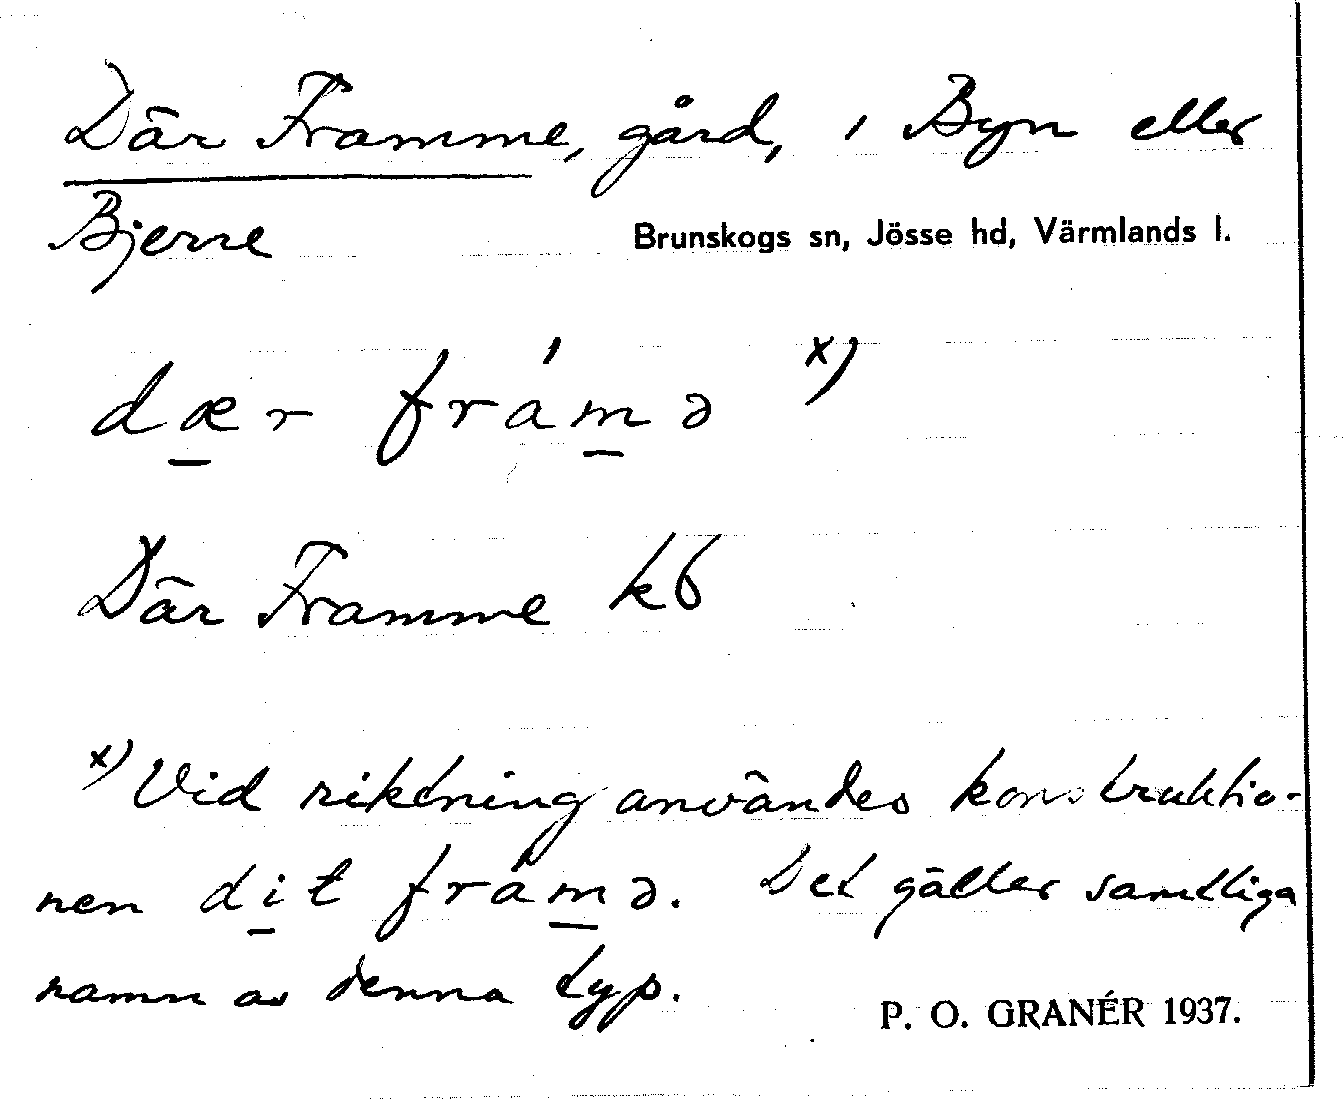 Där Framme, gård, i Byn eller
Bjerne
Brunskogs sn, Jösse hd, Värmlands l.
dæ̱r fram̱ə x)
Där Framme kb
x) Vid riktning användes konstruktio-
nen di̱t fram̱ə. Det gäller samtliga
namn av denna typ.
P. O. GRANÉR 1937.